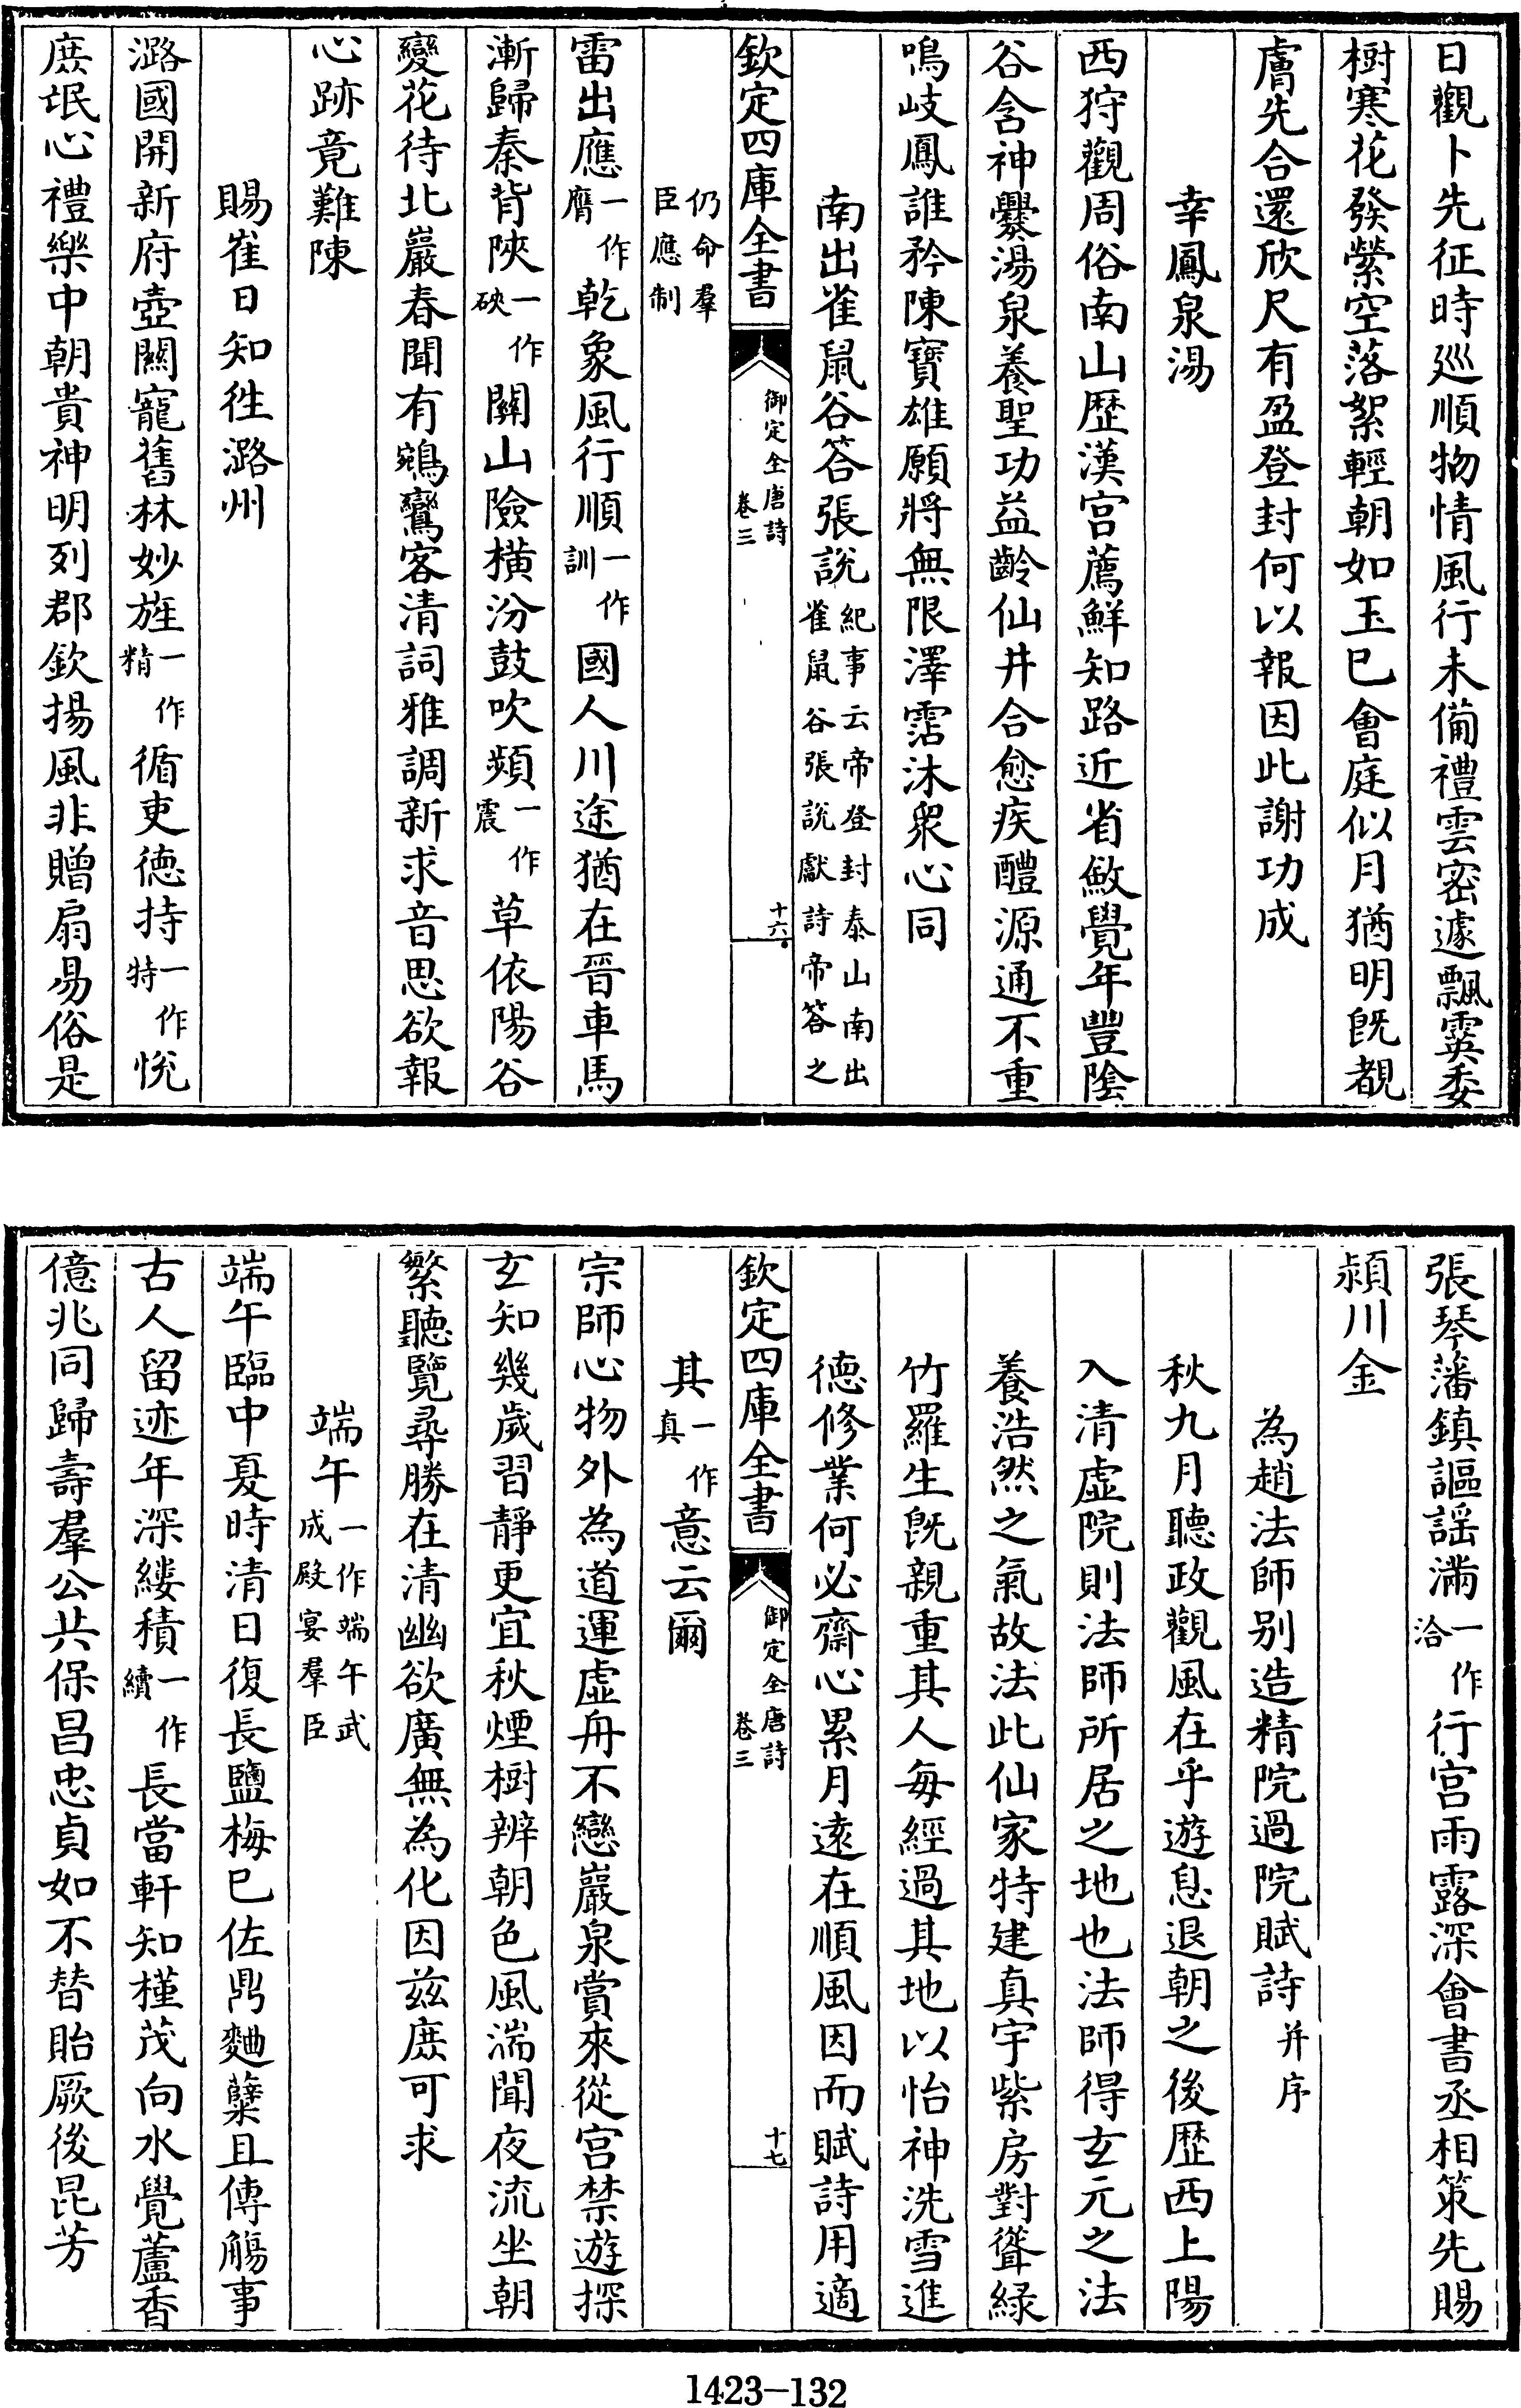 日觀卜先征時巡順物情風行未備禮雲密遽飄霙委
樹寒花發縈空落絮輕朝如玉已會庭似月猶明既覩
膚先合還欣尺有盈登封何以報因此謝功成
幸鳳泉湯
西狩觀周俗南山歴漢宫薦鮮知路近省斂覺年豐陰
谷含神爨湯泉養聖功益齡仙井合愈疾醴源通不重
鳴岐鳳誰矜陳寶雄願將無限澤霑沐衆心同
南出雀鼠谷答張説紀事云帝登封泰山南出雀鼠谷張説獻詩帝答之
欽定四庫全書 御定全唐詩卷三 十六
仍命羣臣應制
雷出應一作膺乾象風行順一作訓國人川途猶在晉車馬
漸歸秦背陜一作硤闗山險横汾鼓吹頻一作震草依陽谷
變花待北巖春聞有鵷鸞客清詞雅調新求音思欲報
心跡竟難陳
賜崔日知徃潞州
潞國開新府壺闗寵舊林妙旌一作精循吏徳持一作特悅
庶氓心禮樂中朝貴神明列郡欽揚風非贈扇易俗是
張琴藩鎮謳謡滿一作洽行宫雨露深會書丞相策先賜
潁川金
為趙法師别造精院過院賦詩并序
秋九月聽政觀風在乎遊息退朝之後歴西上陽
入清虚院則法師所居之地也法師得玄元之法
養浩然之氣故法此仙家特建真宇紫房對聳緑
竹羅生既親重其人每經過其地以怡神洗雪進
德修業何必齋心累月遠在順風因而賦詩用適
欽定四庫全書 御定全唐詩卷三 十七
其一作真意云爾
宗師心物外為道運虚舟不戀巖泉賞來從宫禁遊探
玄知幾歲習靜更宜秋煙樹辨朝色風湍聞夜流坐朝
繁聽覽尋勝在清幽欲廣無為化因兹庶可求
端午一作端午武成殿宴羣臣
端午臨中夏時清日復長鹽梅已佐鼎麯糵且傳觴事
古人留迹年深縷積一作續長當軒知槿茂向水覺蘆香
億兆同歸壽羣公共保昌忠貞如不替貽厥後昆芳
1423—132